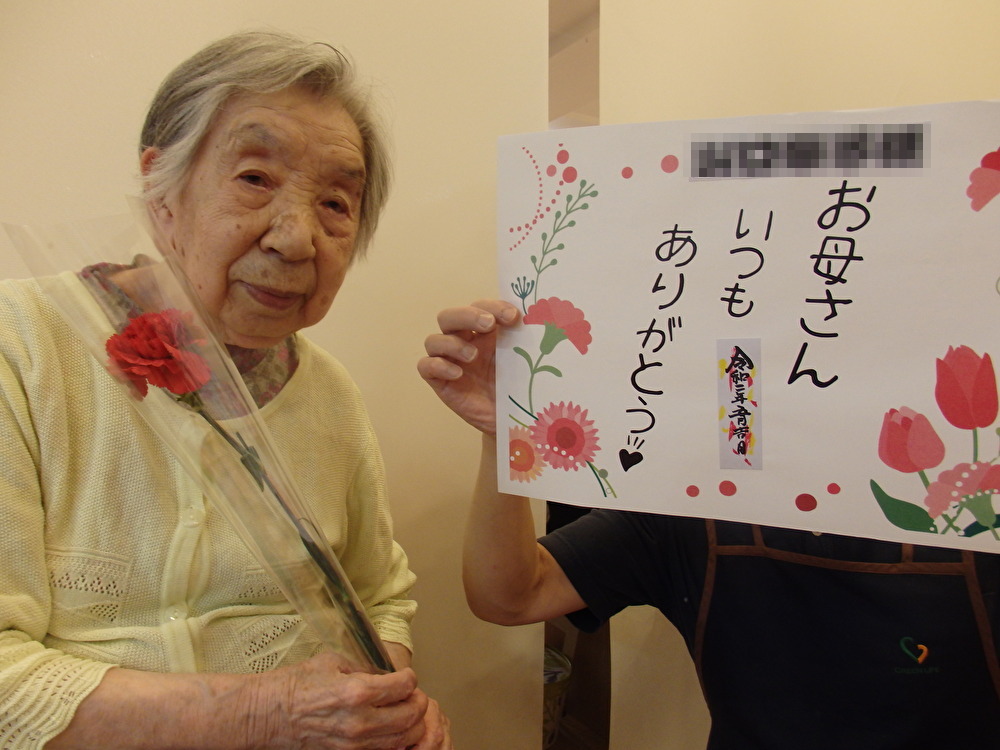 お母さん
いつも
ありがとう♥
令和二年五月吉日